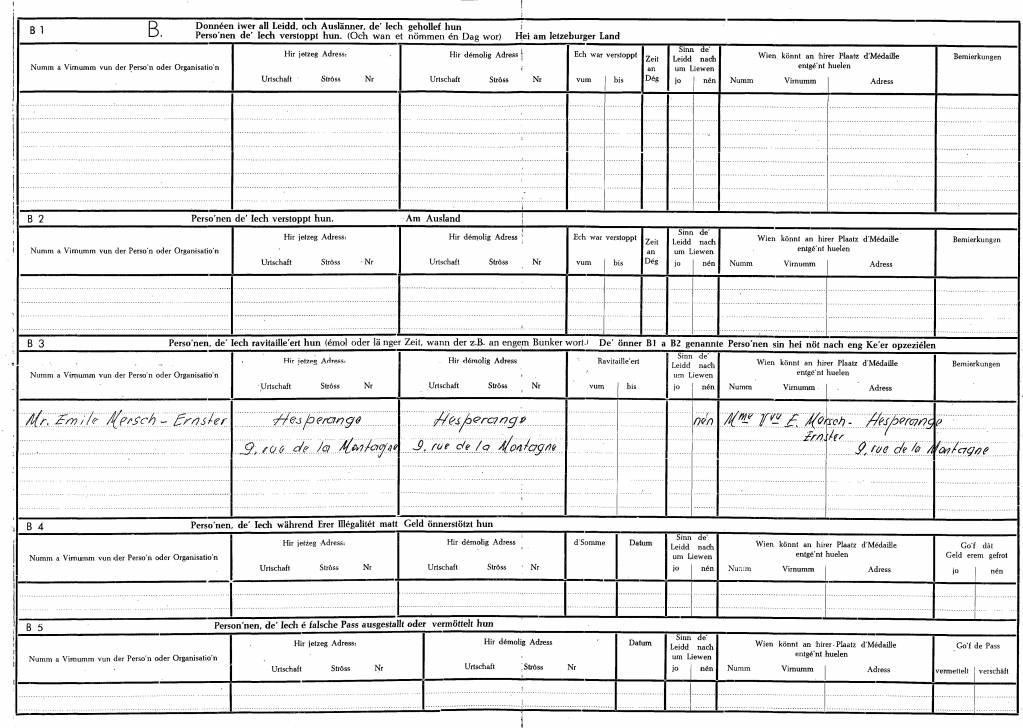 B 1 B. Donnéen iwer all Leidd, och Auslänner, de' Iech gehollef hun
Perso'nen de' Iech verstoppt hun. (Och wan et nömmen én Dag wor) Hei am letzeburger Land
Numm a Virnumm vun der Perso'n oder Organisatio'n Hir jetzeg Adress: Hir démolig Adress Ech war verstoppt Zeit an Dég Sinn de' Leidd nach um Liewen Wien könnt an hirer Plaatz d'Médaille entgé'nt huelen Bemierkungen
Urtschaft Ströss Nr Urtschaft Ströss Nr vum bis jo nén Numm Virnumm Adress
B 2 Perso'nen de' Iech verstoppt hun. Am Ausland
Numm a Virnumm vun der Perso'n oder Organisatio'n Hir jetzeg Adress: Hir démolig Adress Ech war verstoppt Zeit an Dég Sinn de' Leidd nach um Liewen Wien könnt an hirer Plaatz d'Médaille entgé'nt huelen Bemierkungen
Urtschaft Ströss Nr Urtschaft Ströss Nr vum bis jo nén Numm Virnumm Adress
B 3 Perso'nen, de' Iech ravitaille'ert hun (émol oder länger Zeit, wann der z.B. an engem Bunker wort.) De' önner B1 a B2 genannte Perso'nen sin hei nöt nach eng Ke'er opzeziélen
Numm a Virnumm vun der Perso'n oder Organisatio'n Hir jetzeg Adress: Hir démolig Adress Ravitaille'ert Sinn de' Leidd nach um Liewen Wien könnt an hirer Plaatz d'Médaille entgé'nt huelen Bemierkungen
Urtschaft Ströss Nr Urtschaft Ströss Nr vum bis jo nén Numm Virnumm Adress
Mr. Emile Mersch - Ernster Hesperange Hesperange nén Mme Vve E. Mersch- Hesperange
Ernster
9, rue de la Montagne 9, rue de la Montagne 9, rue de la Montagne
B 4 Perso'nen, de' Iech während Erer Illégalitét matt Geld önnerstötzt hun
Numm a Virnumm vun der Perso'n oder Organisatio'n Hir jetzeg Adress: Hir démolig Adress d'Somme Datum Sinn de' Leidd nach um Liewen Wien könnt an hirer Plaatz d'Médaille entgé'nt huelen Go'f dât Geld erem gefrot
Urtschaft Ströss Nr Urtschaft Ströss Nr jo nén Numm Virnumm Adress jo nén
B 5 Person'nen, de' Iech é falsche Pass ausgestallt oder vermöttelt hun
Numm a Virnumm vun der Perso'n oder Organisatio'n Hir jetzeg Adress: Hir démolig Adress Datum Sinn de' Leidd nach um Liewen Wien könnt an hirer Plaatz d'Médaille entgé'nt huelen Go'f de Pass
Urtschaft Ströss Nr Urtschaft Ströss Nr jo nén Numm Virnumm Adress vermettelt verschâft